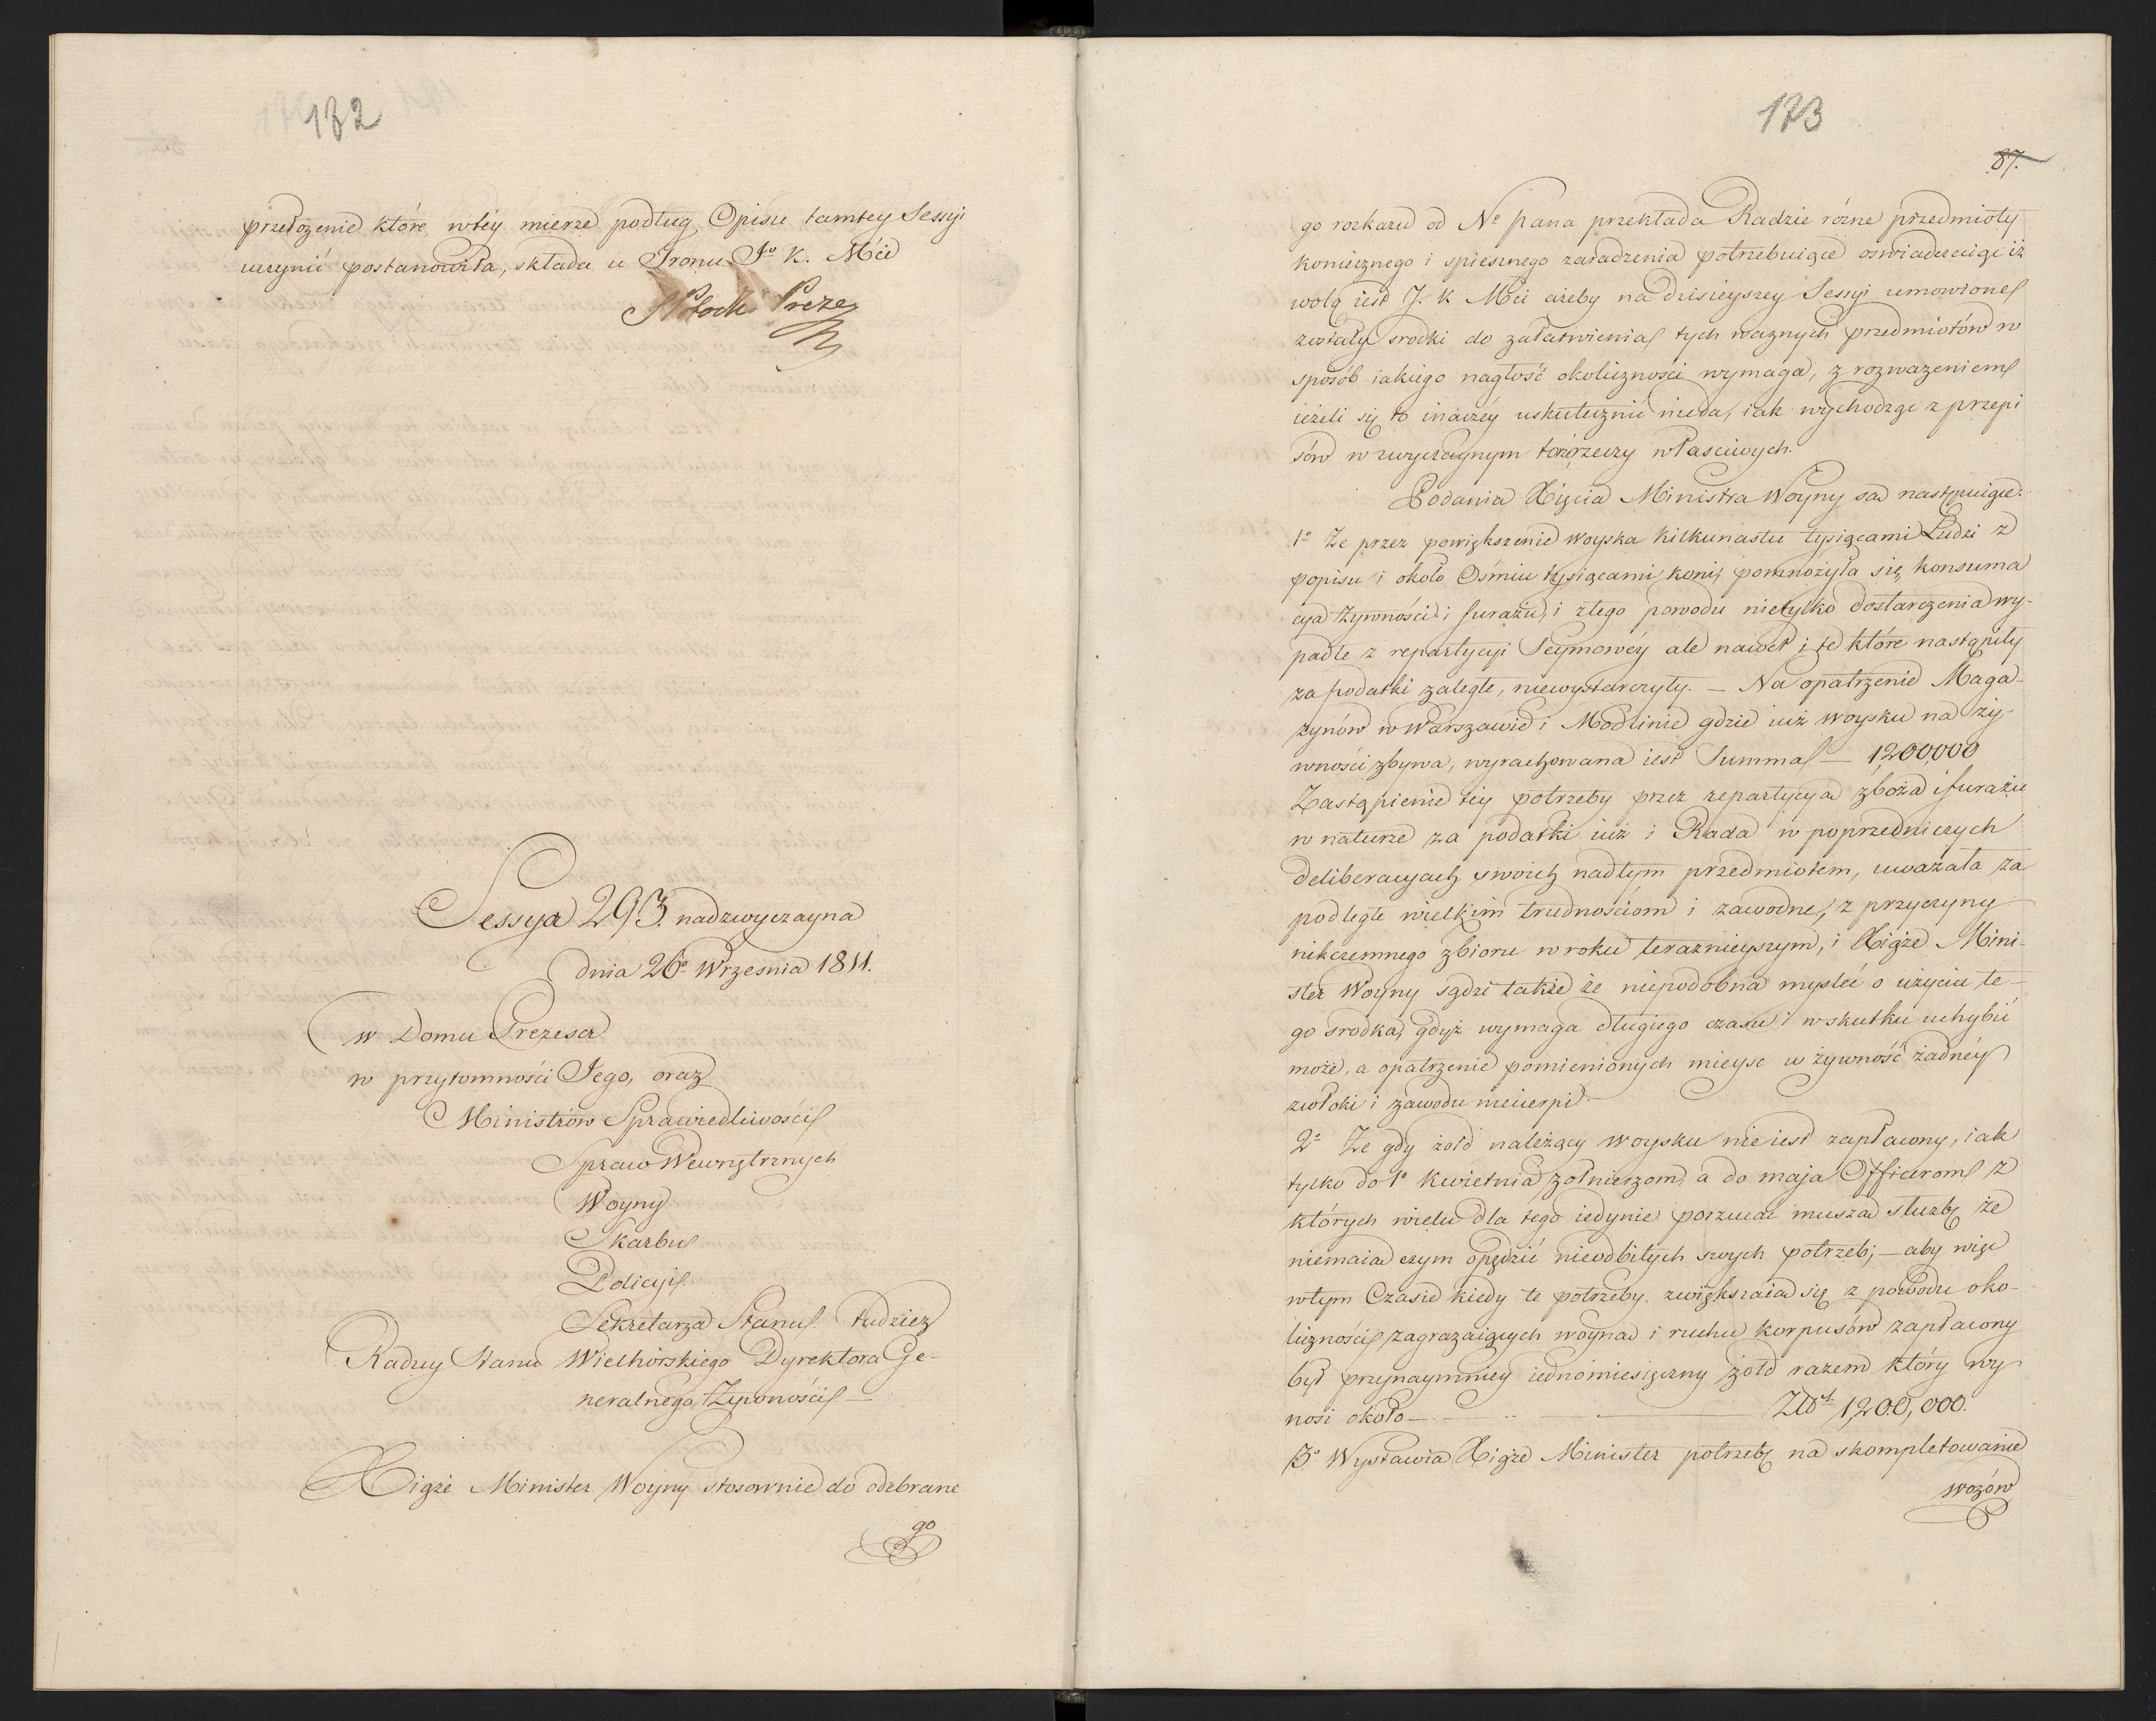 132
przełożenie które wtéy mierze podług Opisu tamtey Sessyi
uczynić postanowiła, składa u Tronu Jo K. Mći
SPotocki Prezes
Sessya 293. nadzwyczayna
dnia 26o Września 1811.
w Domu Prezesa
w przytomności Jego, oraz
Ministrów Sprawiedliwości
Spraw Wewnętrznych
Woyny
Skarbu
Policyi
Sekretarza Stanu. tudzież
Radzcy Stanu Wielhorskiego Dyrektora Ge-
neralnego Żywności —
Xiąże Minister Woyny stosownie do odebrane
go
173
87.
go rozkazu od No Pana przekłada Radzie różne przedmioty
koniecznego i spiesznego zaradzenia potrzebuiące oswiadczaiąc iż
wolą iest J. K Mci ażeby na dzisieyszey Sessyi umowione
zostały srodki do załatwienia tych waznych przedmiotów w
sposób iakiego nagłość okoliczności wymaga, z rozwazeniem
ieżeli się to inaczéy uskutecznić nieda, iak wychodząc z przepi
sów w zwyczaynym torze rzeczy własciwych.
Podania Xięcia Ministra Woyny są następuiące:
1o Że przez powiększenie woyska kilkunastu tysiącami Ludzi z
popisu i około Ośmiu tysiącami koni, pomnożyła się konsuma
cya żywności i furażu, i ztego powodu nietylko dostarczenia wy-
padłe z repartycyi Seymowéy ale nawet i te które nastąpiły
za podatki zaległe, niewystarczyły. — Na opatrzenie Maga-
zynów w Warszawie i Modlinie gdzie iuż woysku na ży-
wności zbywa, wyrachowana iest Summa — 1,200,000
Zastąpienie téy potrzeby przez repartycyą zboża i furażu
w naturze za podatki iuż i Rada w poprzedniczych
deliberacyach swoich nadtym przedmiotem, uważała za
podległe wielkim trudnościom i zawodne, z przyczyny
nikczemnego zbioru w roku teraznieyszym, i Xiąże Mini-
ster Woyny sądzi także że niepodobna mysleć o użyciu te-
go srodka, gdyż wymaga długiego czasu i wskutku uchybić
może, a opatrzenie pomienionych mieysc w żywność żadnéy
zwłoki i zawodu niecierpi.
2o Że gdy żołd należący woysku nie iest zapłacony, iak
tylko do 1o Kwietnia żołnierzom, a do maja Officerom z
których wielu dla tego iedynie porzucać muszą służbę że
niemaią czym opędzić nieodbitych swych potrzeb, — aby więc
wtym Czasie kiedy te potrzeby zwiększaią się z powodu oko-
liczności zagrażaiących woyną i ruchu korpusów zapłacony
był przynaymniéy iednomiesięczny żołd razem który wy-
nosi około — Złot 1,200,000.
3o Wystawia Xiąże Minister potrzebę na skompletowanie
wozów